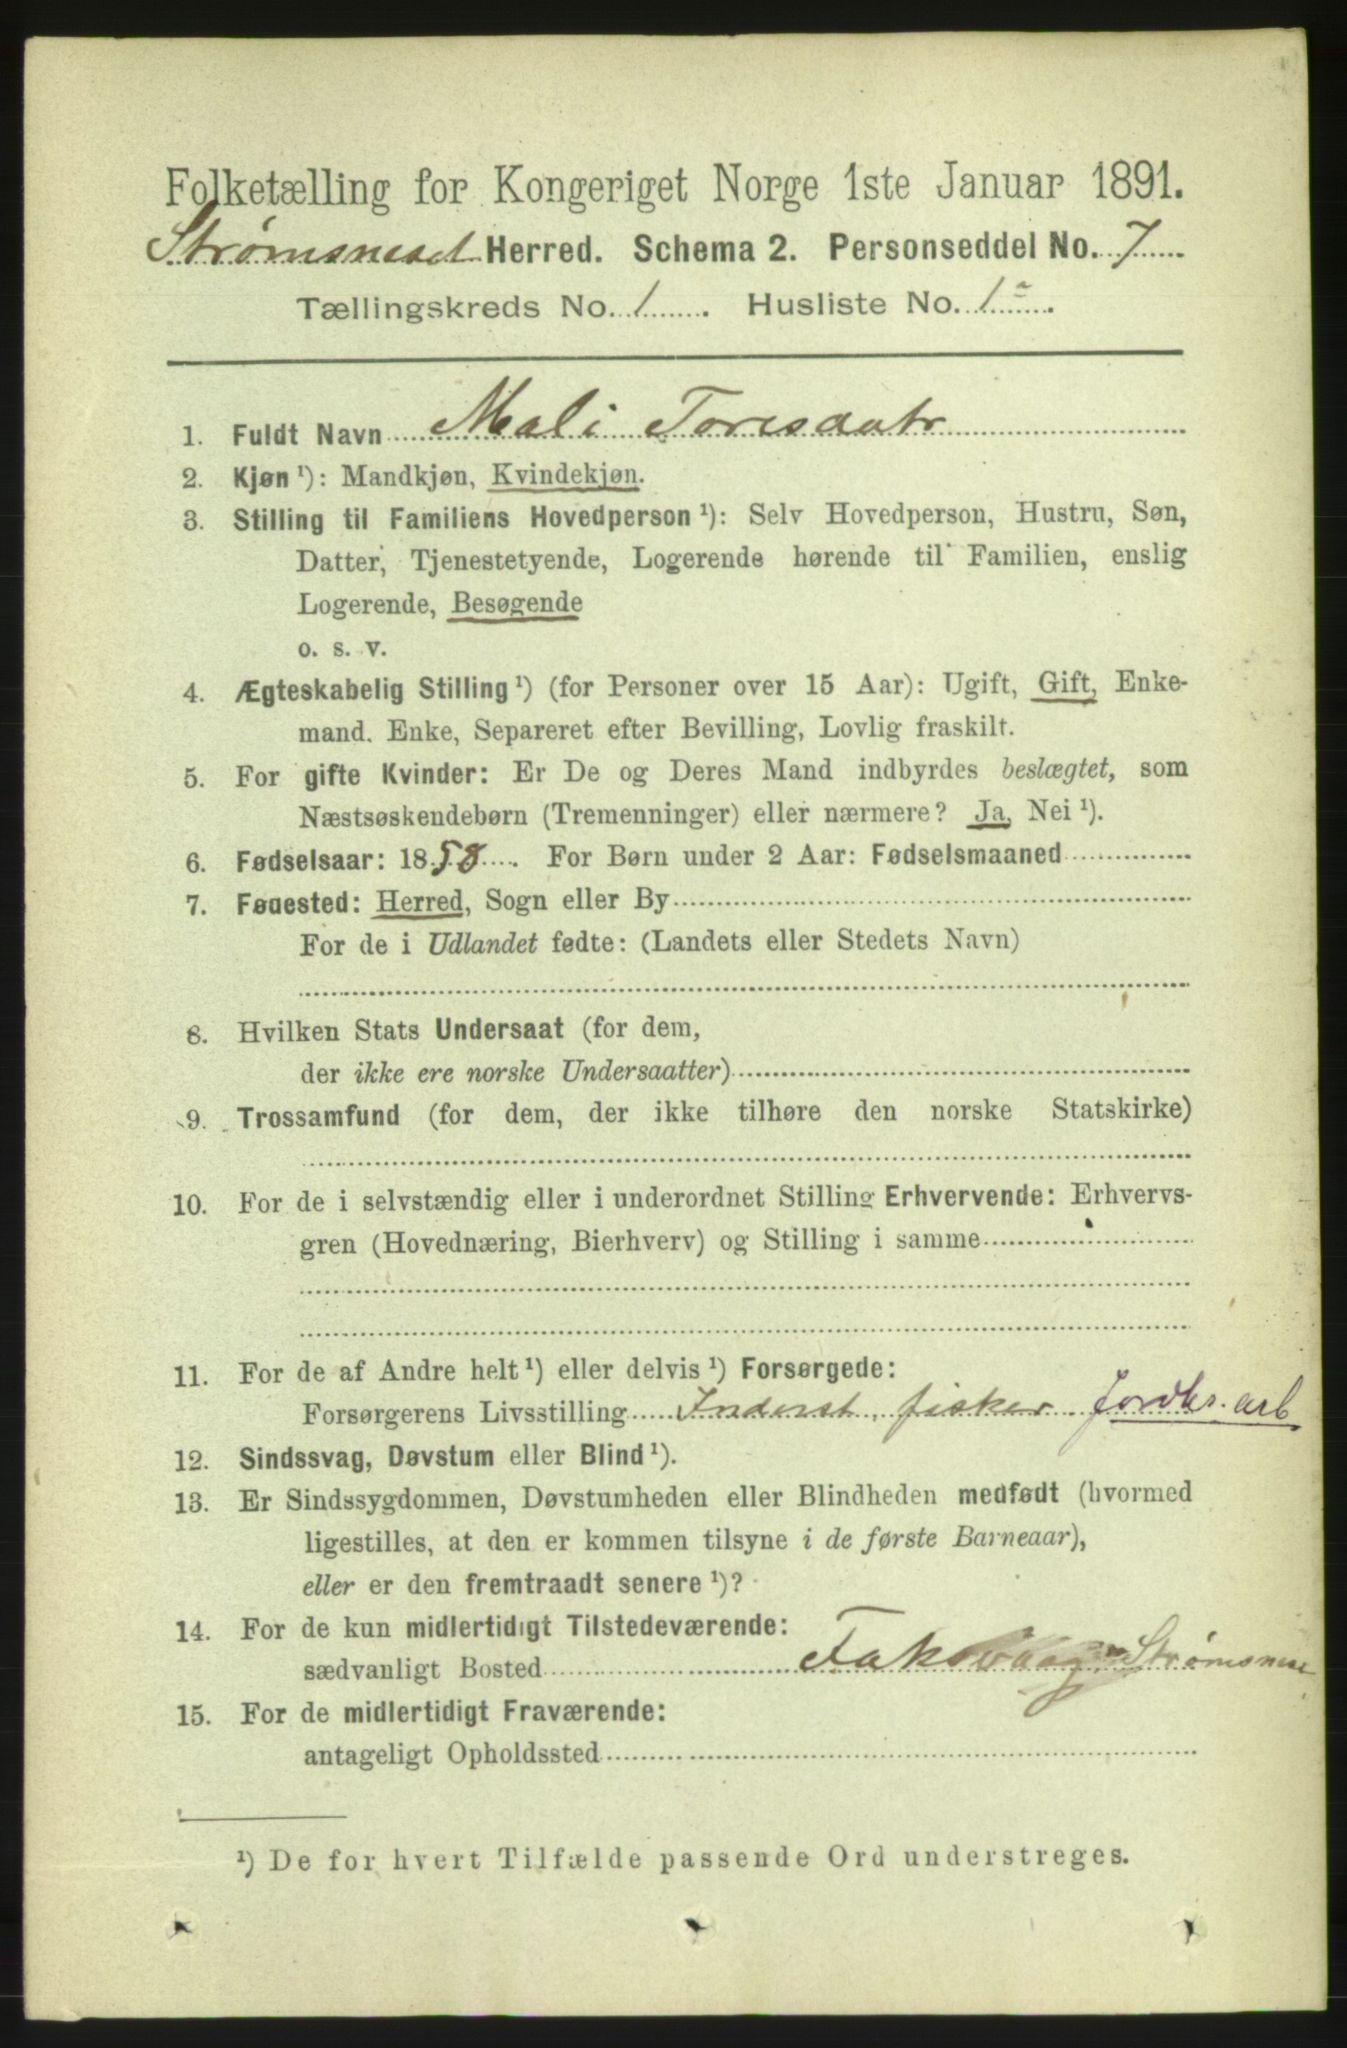 Folketælling for Kongeriget Norge 1ste Januar 1891.
Strømsneset Herred. Schema 2. Personseddel No. 7
Tællingskreds No. 1. Husliste No. 1a.
1. Fuldt Navn Mali Toresdatr
2. Kjøn¹): Mandkjøn, Kvindekjøn.
3. Stilling til Familiens Hovedperson¹): Selv Hovedperson, Hustru, Søn,
Datter, Tjenestetyende, Logerende hørende til Familien, enslig
Logerende, Besøgende
o. s. v.
4. Ægteskabelig Stilling¹) (for Personer over 15 Aar): Ugift, Gift, Enke-
mand. Enke, Separeret efter Bevilling, Lovlig fraskilt.
5. For gifte Kvinder: Er De og Deres Mand indbyrdes beslægtet, som
Næstsøskendebørn (Tremenninger) eller nærmere? Ja, Nei¹).
6. Fødselsaar: 1858. For Børn under 2 Aar: Fødselsmaaned
7. Føuested: Herred, Sogn eller By
For de i Udlandet fødte: (Landets eller Stedets Navn)
8. Hvilken Stats Undersaat (for dem,
der ikke ere norske Undersaatter)
9. Trossamfund (for dem, der ikke tilhøre den norske Statskirke)
10. For de i selvstændig eller i underordnet Stilling Erhvervende: Erhvervs-
gren (Hovednæring, Bierhverv) og Stilling i samme
11. For de af Andre helt¹) eller delvis¹) Forsørgede:
Forsørgerens Livsstilling Inderst, fisker jordbr. arb
12. Sindssvag, Døvstum eller Blind¹).
13. Er Sindssygdommen, Døvstumheden eller Blindheden medfødt (hvormed
ligestilles, at den er kommen tilsyne i de første Barneaar),
eller er den fremtraadt senere¹)?
14. For de kun midlertidigt Tilstedeværende:
sædvanligt Bosted Strømsnese
15. For de midlertidigt Fraværende:
antageligt Opholdssted
¹) De for hvert Tilfælde passende Ord understreges.